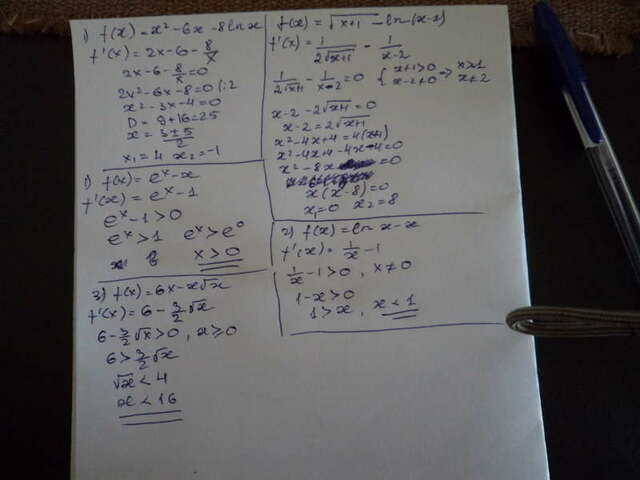 1) f(x) = x² - 6x - 8ln x
f'(x) = 2x - 6 - 8/x
2x - 6 - 8/x = 0
2x² - 6x - 8 = 0 |:2
x² - 3x - 4 = 0
D = 9 + 16 = 25
x = (3 ± 5)/2
x₁ = 4 x₂ = -1
1) f(x) = eˣ - x
f'(x) = eˣ - 1
eˣ - 1 > 0
eˣ > 1 eˣ > e⁰
x > 0
3) f(x) = 6x - x√x
f'(x) = 6 - 3/2 √x
6 - 3/2 √x > 0, x ≥ 0
6 > 3/2 √x
√x < 4
x < 16
f(x) = √(x+1) - ln(x-2)
f'(x) = 1/(2√(x+1)) - 1/(x-2)
1/(2√(x+1)) - 1/(x-2) = 0 { x+1>0 => x>1
x-2≠0 x≠2
x - 2 - 2√(x+1) = 0
x - 2 = 2√(x+1)
x² - 4x + 4 = 4(x+1)
x² - 4x + 4 - 4x - 4 = 0
x² - 8x = 0
x(x-8) = 0
x₁ = 0 x₂ = 8
2) f(x) = ln x - x
f'(x) = 1/x - 1
1/x - 1 > 0, x ≠ 0
1 - x > 0
1 > x, x < 1